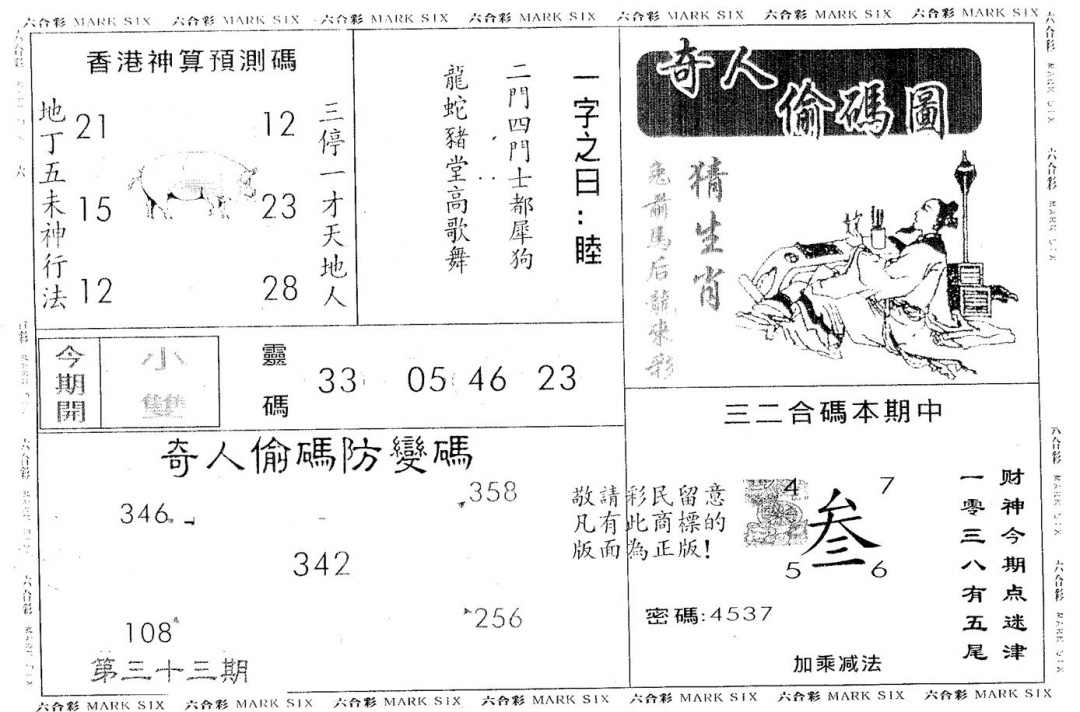 六合彩 MARK SIX 六合彩 MARK SIX 六合彩 MARK SIX 六合彩 MARK SIX 六合彩 MARK SIX 六合彩 MARK SIX 六合彩 MARK SIX
香港神算預測碼
地丁五未神行法
21 12
15 23
12 28
三停一才天地人
一字之曰:睦
二門四門士都犀狗
龍蛇豬堂高歌舞
奇人偷碼圖
猜生肖
兔前馬后龍來彩
今期開
小雙
靈碼
33 05 46 23
三二合碼本期中
奇人偷碼防變碼
346 358
342
108 256
第三十三期
敬請彩民留意
凡有此商標的
版面為正版!
4 7
叁
5 6
密碼:4537
加乘减法
财神今期点迷津
一零三八有五尾
六合彩 MARK SIX 六合彩 MARK SIX 六合彩 MARK SIX 六合彩 MARK SIX 六合彩 MARK SIX 六合彩 MARK SIX